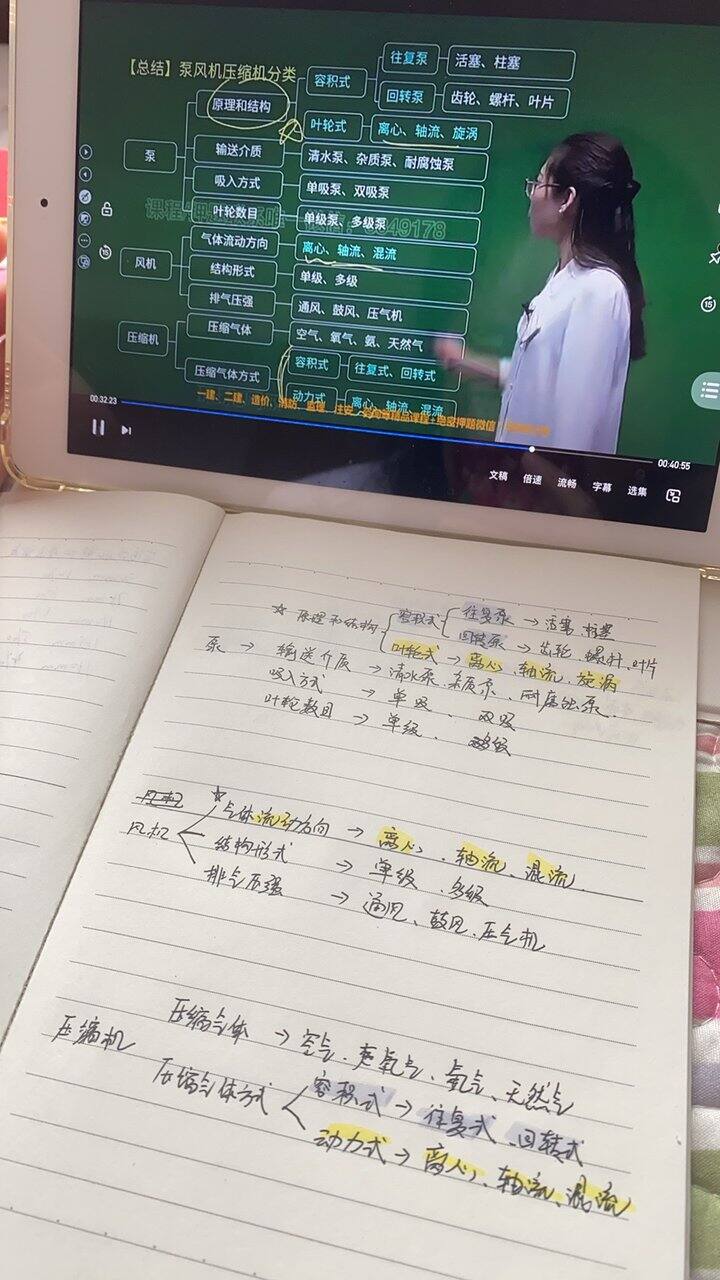 【总结】泵风机压缩机分类
泵
原理和结构
容积式
往复泵
活塞、柱塞
回转泵
齿轮、螺杆、叶片
叶轮式
离心、轴流、旋涡
输送介质
清水泵、杂质泵、耐腐蚀泵
吸入方式
单吸泵、双吸泵
叶轮数目
单级泵、多级泵
风机
气体流动方向
离心、轴流、混流
结构形式
单级、多级
排气压强
通风、鼓风、压气机
压缩机
压缩气体
空气、氧气、氨、天然气
压缩气体方式
容积式
往复式、回转式
动力式
离心、轴流、混流
49178
一建、二建、造价、消防、监理
15
15
00:32:23
00:40:55
文稿 倍速 流畅 字幕 选集
☆ 原理和结构 容积式 往复泵 → 活塞、柱塞
回转泵 → 齿轮、螺杆、叶片
叶轮式 → 离心、轴流、旋涡
泵 → 输送介质 → 清水泵、杂质泵、耐腐蚀泵
吸入方式 → 单吸、双吸
叶轮数目 → 单级、多级
风机
风机 ☆气体流动方向 → 离心、轴流、混流
结构形式 → 单级、多级
排气压强 → 通风、鼓风、压气机
压缩机 压缩气体 → 空气、氧气、氨气、天然气
压缩气体方式 容积式 → 往复式、回转式
动力式 → 离心、轴流、混流